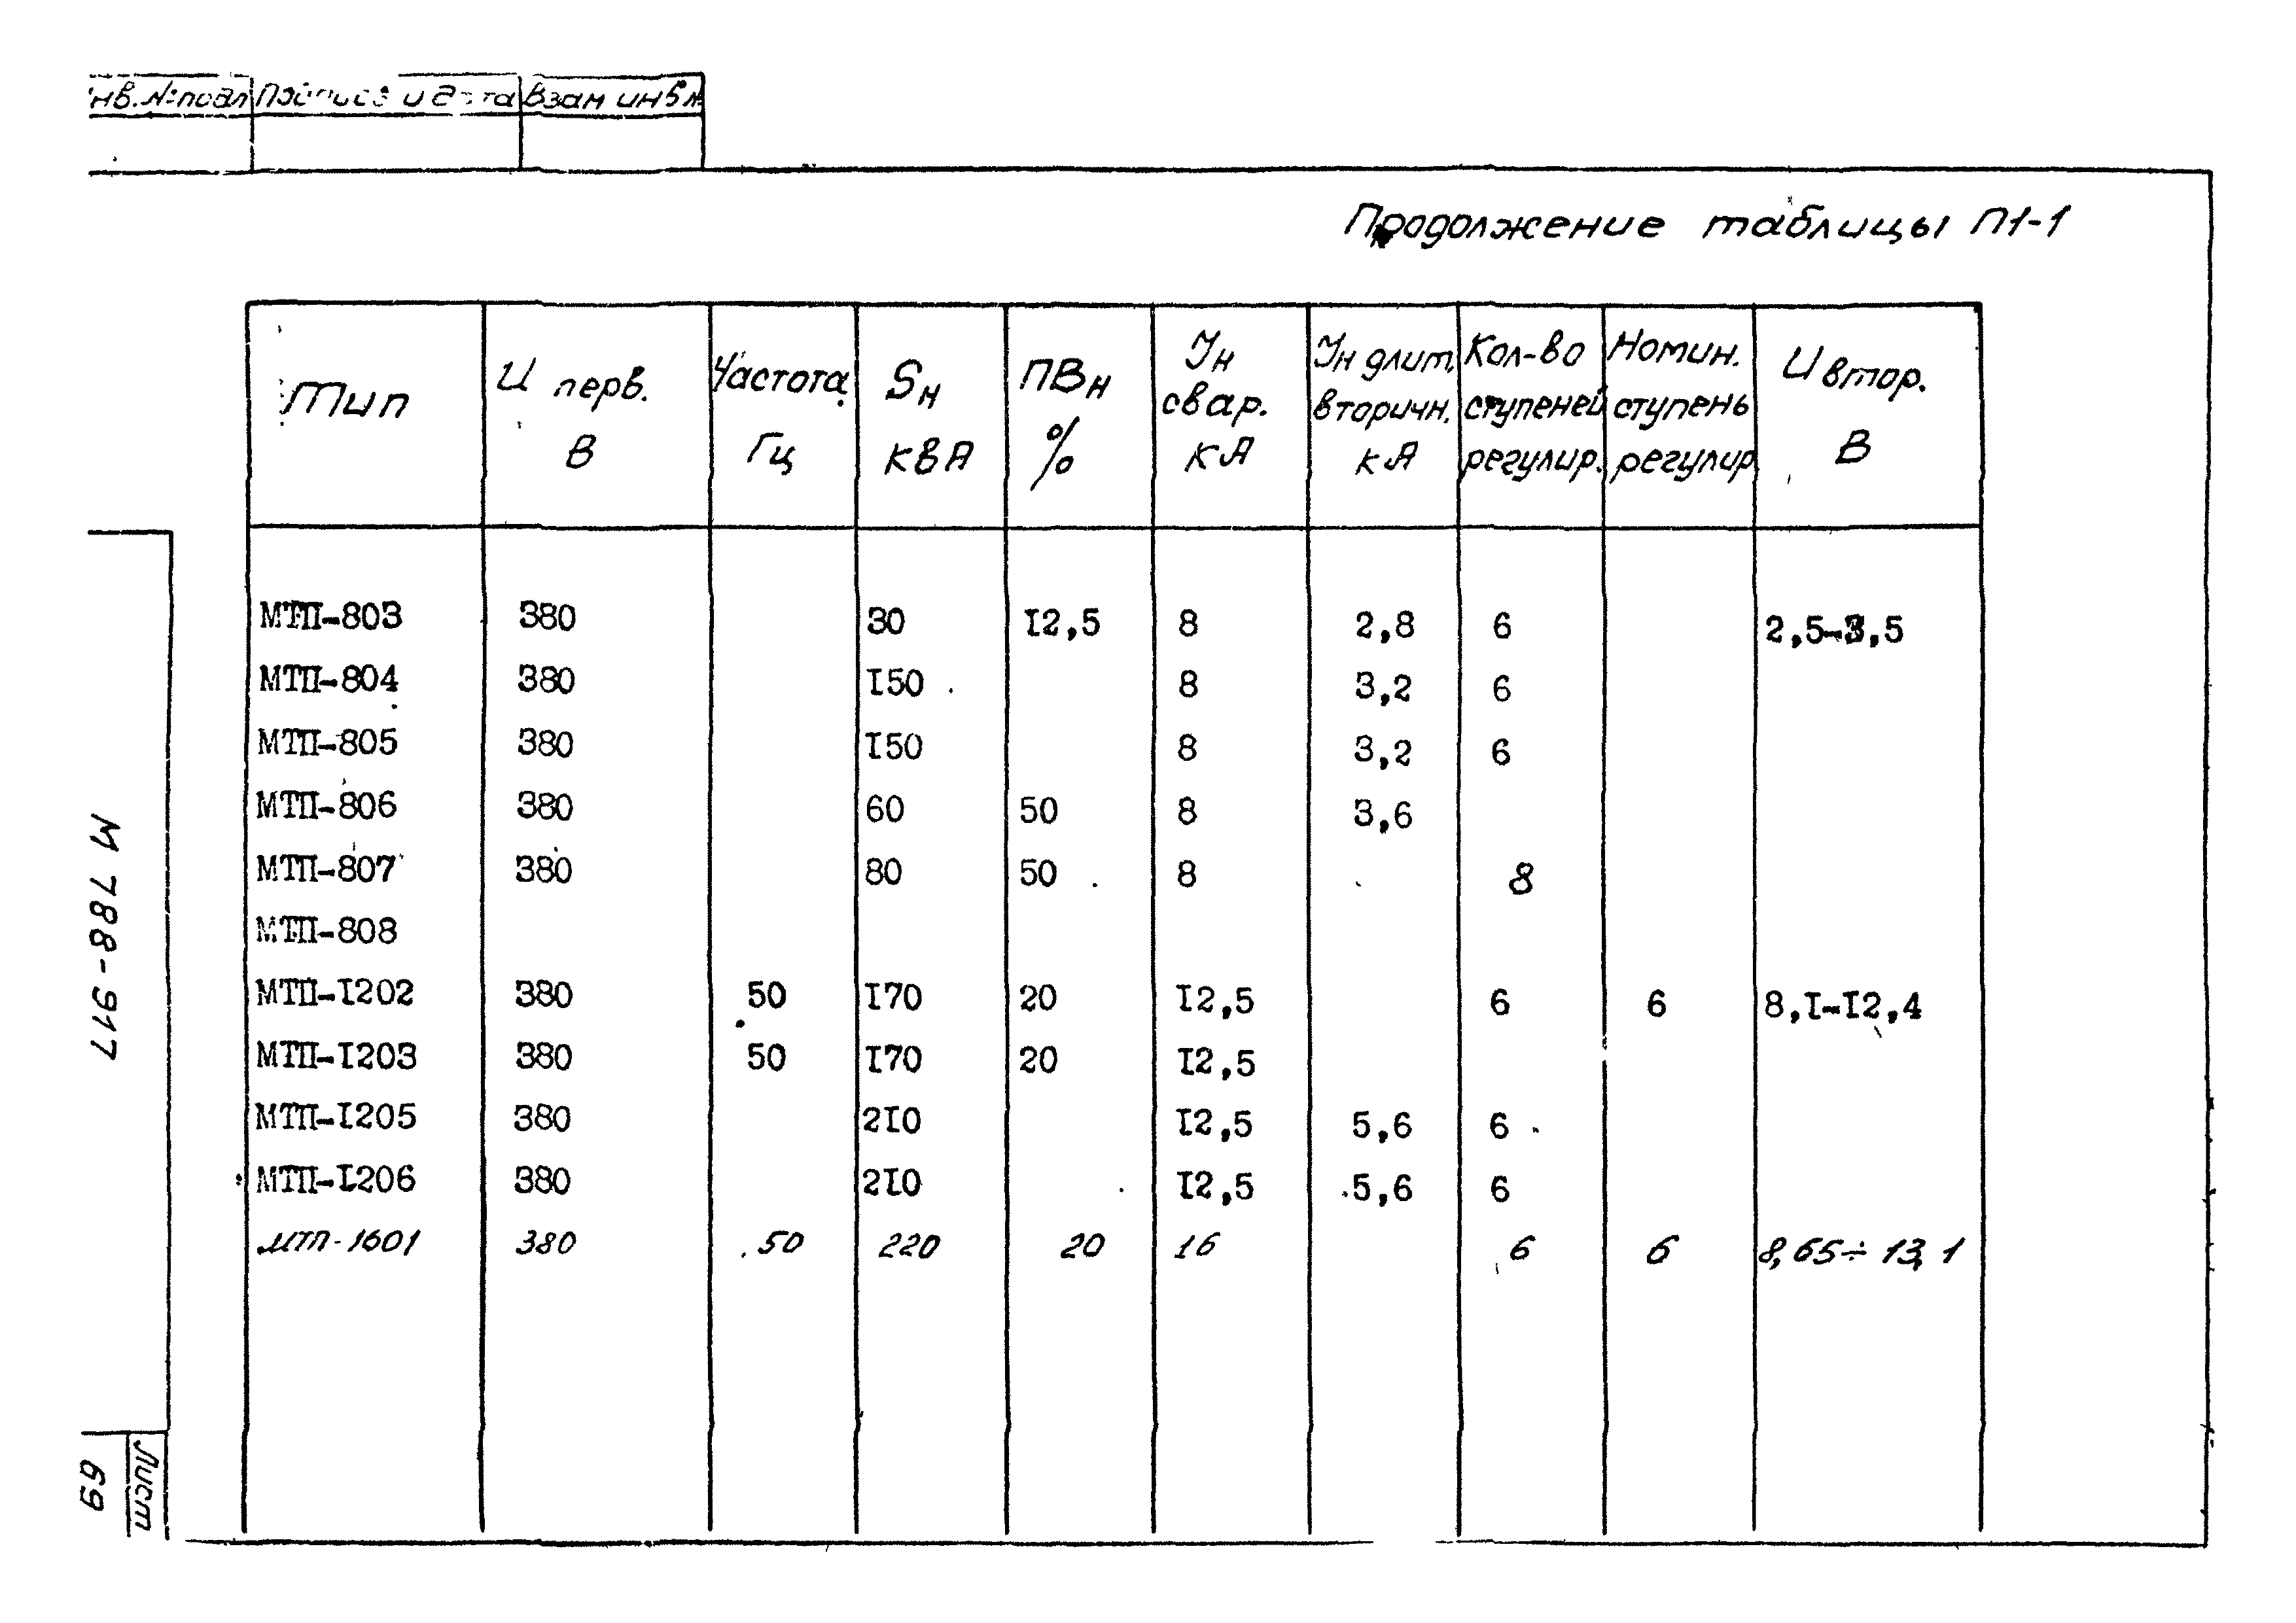 Инв.№подл Подпись и дата Взам инв №
Продолжение таблицы П1-1
Тип | U перв. В | Частота Гц | Sн кВА | ПВн % | Iн свар. кА | Iн длит. вторичн. кА | Кол-во ступеней регулир. | Номин. ступень регулир. | U втор. В
МТП-803 380 30 12,5 8 2,8 6 2,5-3,5
МТП-804 380 150 8 3,2 6
МТП-805 380 150 8 3,2 6
МТП-806 380 60 50 8 3,6
МТП-807 380 80 50 8 8
МТП-808
МТП-1202 380 50 170 20 12,5 6 6 8,1-12,4
МТП-1203 380 50 170 20 12,5
МТП-1205 380 210 12,5 5,6 6
МТП-1206 380 210 12,5 5,6 6
МТП-1601 380 50 220 20 16 6 6 8,65÷13,1
М 788-917
Лист
69